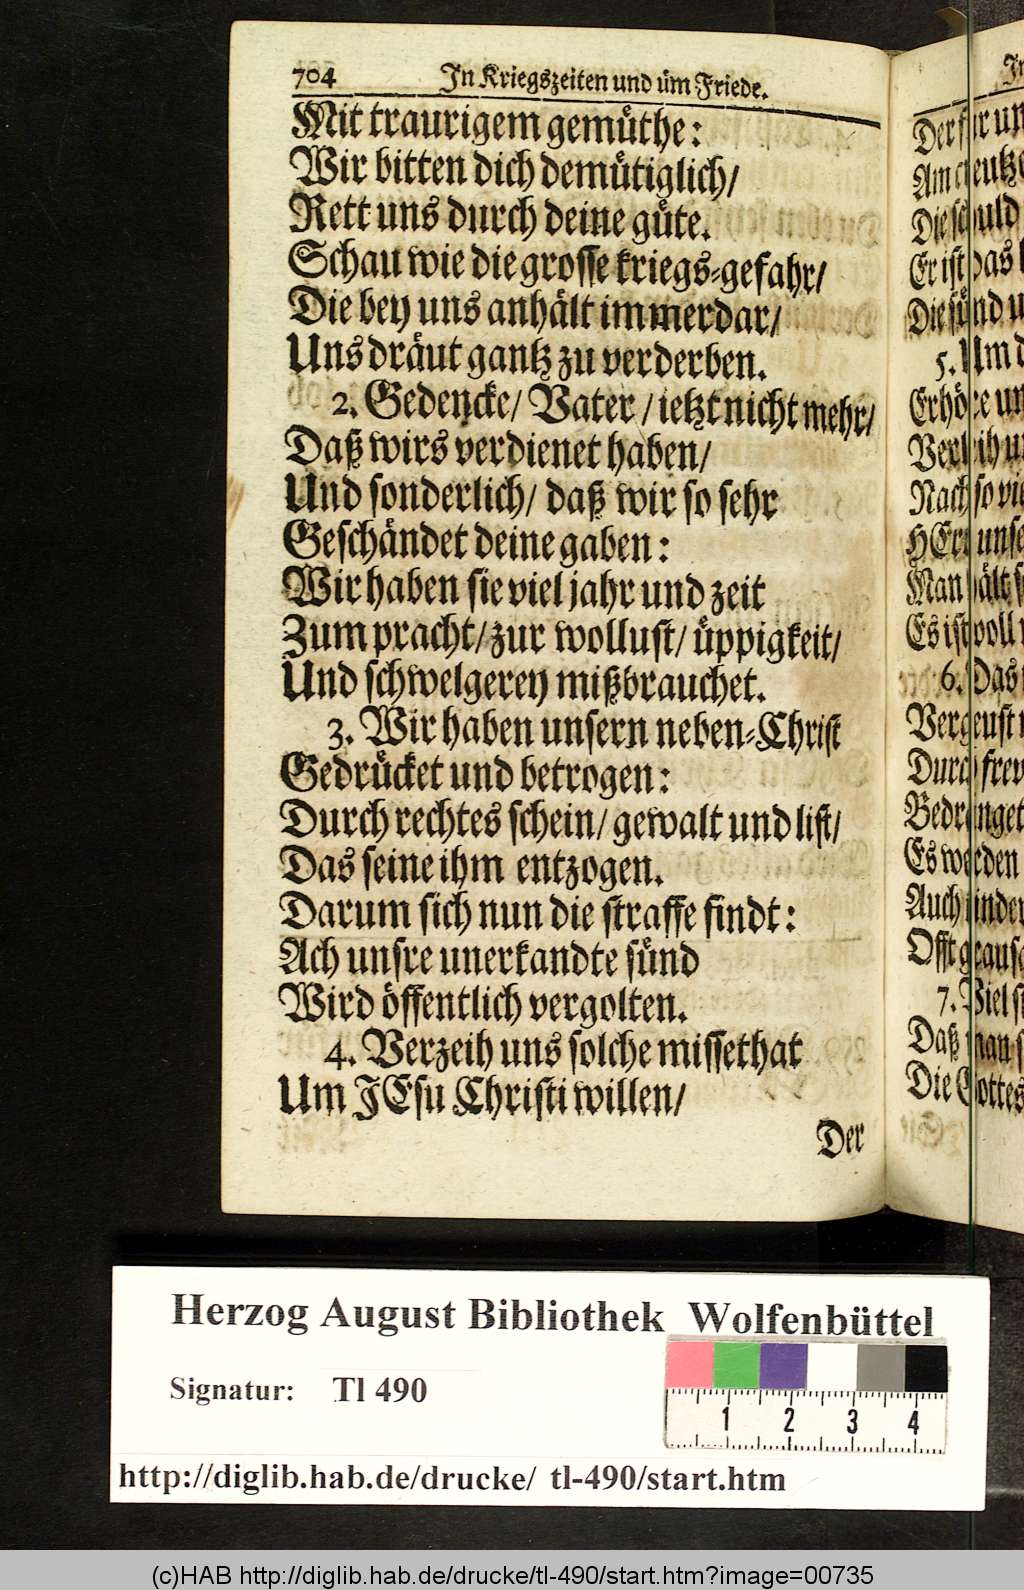 704 In Kriegszeiten und üm Friede.
Mit traurigem gemüthe:
Wir bitten dich demütiglich/
Rett uns durch deine güte.
Schau wie die grosse kriegs-gefahr/
Die bey uns anhält immerdar/
Uns dräut gantz zu verderben.
2. Gedencke/ Vater/ ietzt nicht mehr/
Daß wirs verdienet haben/
Und sonderlich/ daß wir so sehr
Geschändet deine gaben:
Wir haben sie viel jahr und zeit
Zum pracht/ zur wollust/ üppigkeit/
Und schwelgerey mißbrauchet.
3. Wir haben unsern neben-Christ
Gedrücket und betrogen:
Durch rechtes schein/ gewalt und list/
Das seine ihm entzogen.
Darum sich nun die straffe findt:
Ach unsre unerkandte sünd
Wird öffentlich vergolten.
4. Verzeih uns solche missethat
Um JEsu Christi willen/
Der
5. Um
6. Das
7. Viel
Daß man
Herzog August Bibliothek Wolfenbüttel
Signatur: Tl 490
1 2 3 4
http://diglib.hab.de/drucke/ tl-490/start.htm
(c)HAB http://diglib.hab.de/drucke/tl-490/start.htm?image=00735